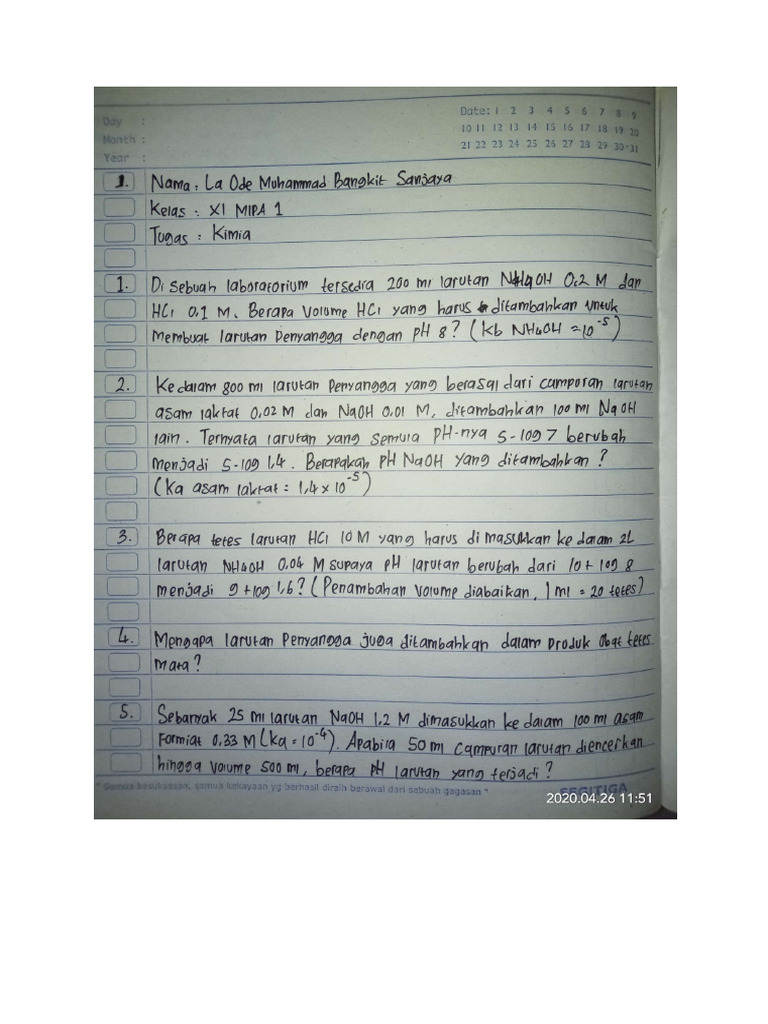 Day :
Month :
Year :
Date: 1 2 3 4 5 6 7 8 9
10 11 12 13 14 15 16 17 18 19 20
21 22 23 24 25 26 27 28 29 30-31
1. Nama : La Ode Muhammad Bangkit Sanjaya
Kelas : XI MIPA 1
Tugas : Kimia
1. Di sebuah laboratorium tersedia 200 ml larutan NH4OH 0.2 M dan
HCl 0,1 M. Berapa volume HCl yang harus ditambahkan untuk
membuat larutan penyangga dengan pH 8? (Kb NH4OH = 10⁻⁵)
2. Ke dalam 800 ml larutan penyangga yang berasal dari camporan larutan
asam laktat 0,02 M dan NaOH 0.01 M, ditambahkan 100 ml NaOH
lain. Ternyata larutan yang semula pH-nya 5-log 7 berubah
menjadi 5-log 1,4. Berapakah pH NaOH yang ditambahkan ?
(Ka asam laktat = 1,4 x 10⁻⁵)
3. Berapa tetes larutan HCl 10 M yang harus di masukkan ke dalam 2L
larutan NH4OH 0.04 M supaya pH larutan berubah dari 10 + log 8
menjadi 9 + log 1,6? (Penambahan volume diabaikan, 1 ml = 20 tetes)
4. Mengapa larutan penyangga juga ditambahkan dalam produk obat tetes
mata?
5. Sebanyak 25 ml larutan NaOH 1,2 M dimasukkan ke dalam 100 ml asam
Formiat 0,33 M (Ka = 10⁻⁴). Apabila 50 ml campuran larutan diencerkan
hingga volume 500 ml, berapa pH larutan yang terjadi ?
" Semua kesuksesan, semua kekayaan yg berhasil diraih berawal dari sebuah gagasan "
SEGITIGA
2020.04.26 11:51